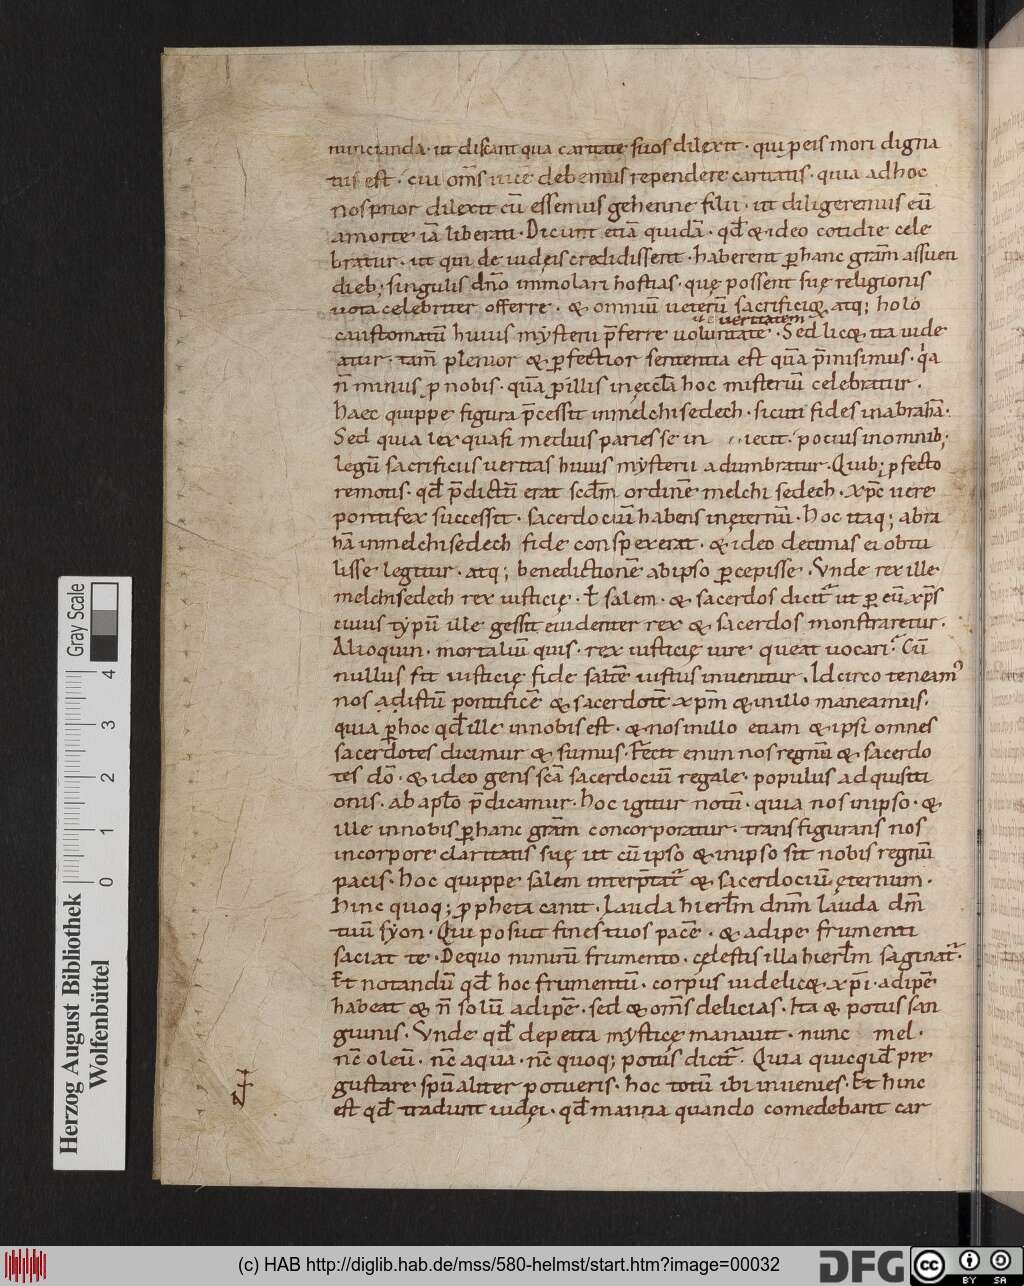 nuncianda · ut discant qua caritate suos dilexit · qui p eis mori digna
tus est · cui om̄s uicē debemus rependere caritatis · quia ad hoc
nos prior dilexit cū essemus gehenne filii · ut diligeremus eū
a morte iā liberati · Dicunt etiā quidā · qd̄ & ideo cotidie cele
bratur · ut qui de iudeis credidissent · haberent ꝑ hanc grām assueti
dieb; singulis dn̄o immolari hostias · quę possent suę religionis
uota celebriter offerre · & omniū ueterū sacrificioꝝ atq; holo
caustomatū huius mẏsterii p̄ferre uoluntatē · Sed lic& ita uide
ueritatem
atur · tam̄ plenior & ꝑfectior sententia est quā p̄misimus · qa
n̄ minus p nobis · quā p illis in eccl̄a hoc misteriū celebratur ·
Haec quippe figura p̄cessit in melchisedech · sicuti fides in abrahā ·
Sed quia lex quasi medius paries se in iecit · pocius in omnib;
legū sacrificiis ueritas huius mẏsterii adumbratur · Quib; pfecto
remotis · qd̄ p̄dictū erat scd̄m ordinē melchisedech · xp̄c uere
pontifex successit · sacerdociū habens in ęternū · Hoc itaq; abra
hā in melchisedech fide conspexerat · & ideo decimas ei obtu
lisse legitur · atq; benedictionē ab ipso ꝑcepisse · Vnde rex ille
melchisedech rex iusticię · ł salem · & sacerdos dicit̄ ut ꝑ eū xp̄s
cuius tẏpū ille gessit euidenter rex & sacerdos monstraretur ·
Alioquin · mortaliū quis · rex iusticię iure queat uocari · Cū
nullus sit iusticię fide saltē iustus inuenitur · Idcirco teneam᾽
nos adistū pontificē & sacerdotē xp̄m & in illo maneamus ·
quia ꝑ hoc qd̄ ille in nobis est · & nos in illo etiam & ipsi omnes
sacerdotes dicimur & sumus · Fecit enim nos regnū & sacerdo
tes dō · & ideo gens scā sacerdociū regale · populus adquisiti
onis · ab apl̄o p̄dicamur · Hoc igitur notū · quia nos in ipso · &
ille in nobis ꝑ hanc grām concorporatur · transfigurans nos
in corpore claritatis suę ut cū ipso & in ipso sit nobis regnū
pacis · Hoc quippe salem interp̄tat̄ & sacerdociū ęternum ·
Hinc quoq; ppheta canit · Lauda hierl̄m dn̄m lauda dm̄
tuū sẏon · Qui posuit fines tuos pacē · & adipe frumenti
saciat te · De quo nimirū frumento · cęlestis illa hierl̄m saginat̄ ·
Et notandū qd̄ hoc frumentū · corpus uidelic& xp̄i · adipē
habeat & n̄ solū adipē · sed & om̄s delicias · Ita & potus san
guinis · Vnde qd̄ de petra mẏsticę manauit · nunc mel ·
nc̄ oleū · nc̄ aqua · nc̄ quoq; potus dicit̄ · Quia quicqd̄ pre
gustare spūaliter potueris · hoc totū ibi inuenies · Et hinc
est qd̄ tradunt iudęi · qd̄ manna quando comedebant car
Herzog August Bibliothek
Wolfenbüttel
Gray Scale
0 1 2 3 4
(c) HAB http://diglib.hab.de/mss/580-helmst/start.htm?image=00032
DFG
cc BY SA